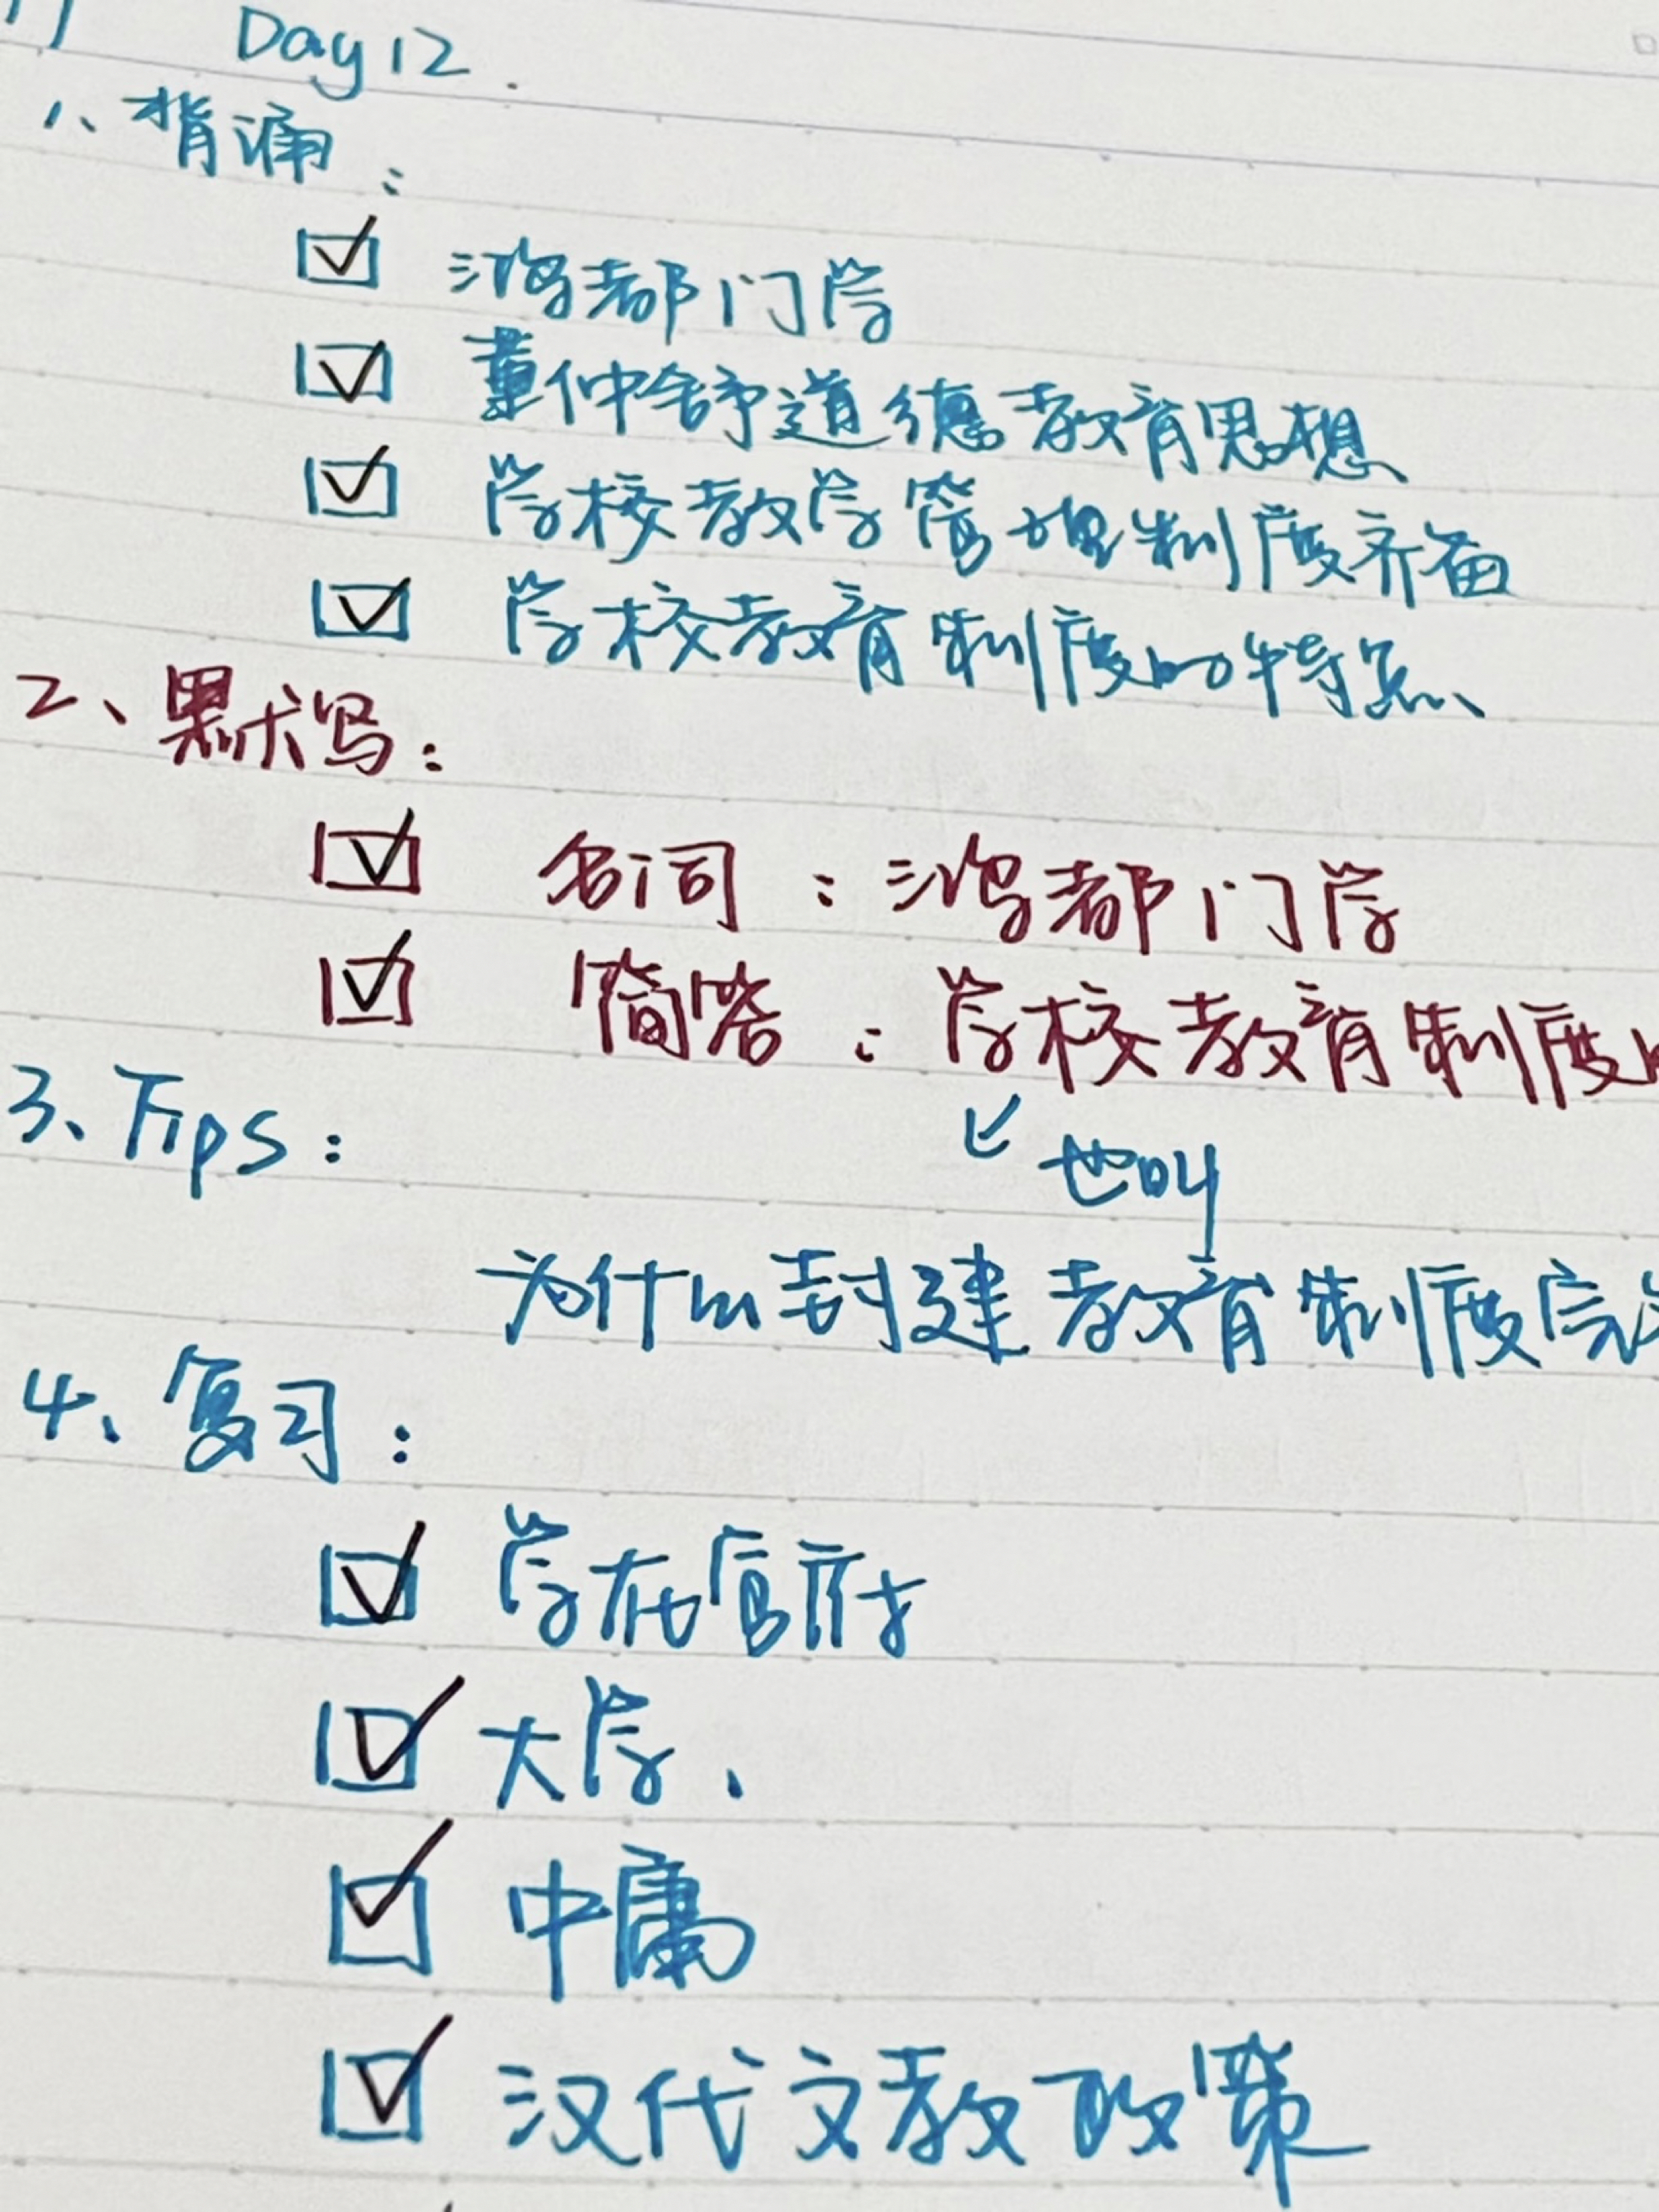 Day 12.
1、背诵：
鸿都门学
董仲舒道德教育思想
学校教学管理制度齐备
学校教育制度的特点
2、默写：
名词：鸿都门学
简答：学校教育制度
3、Tips：
也叫
为什么封建教育制度完
4、复习：
学在官府
大学、
中庸
汉代文教政策